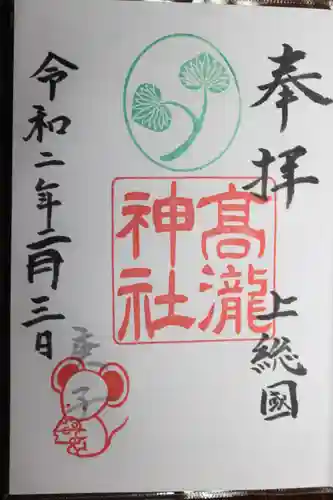 奉拝
上総國
髙瀧
神社
令和二年二月三日
庚子